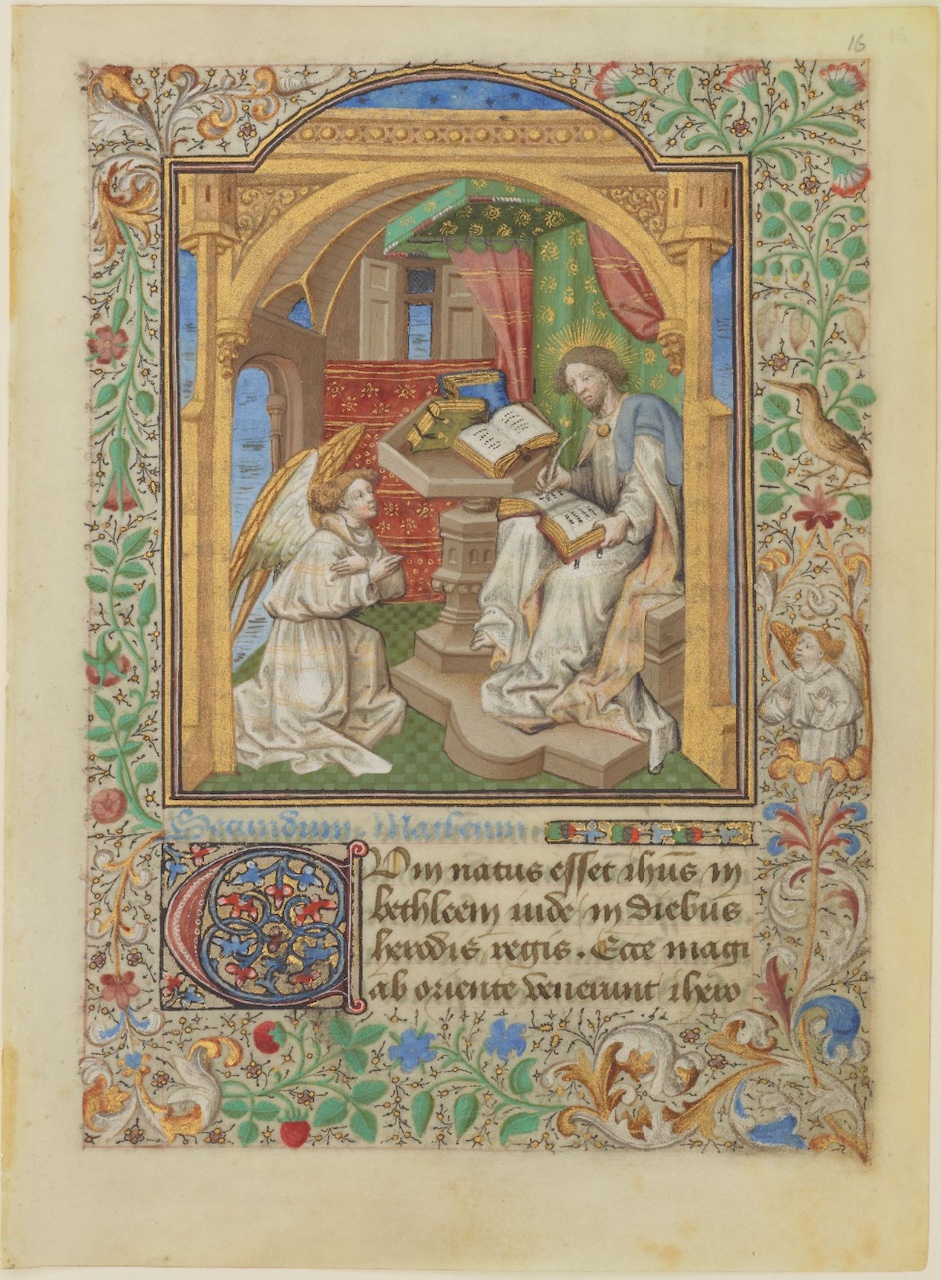 16
Secundum. Matheum
Cum natus esset ihūs in
bethleem iude in diebus
herodis regis. Ecce magi
ab oriente venerunt ihero